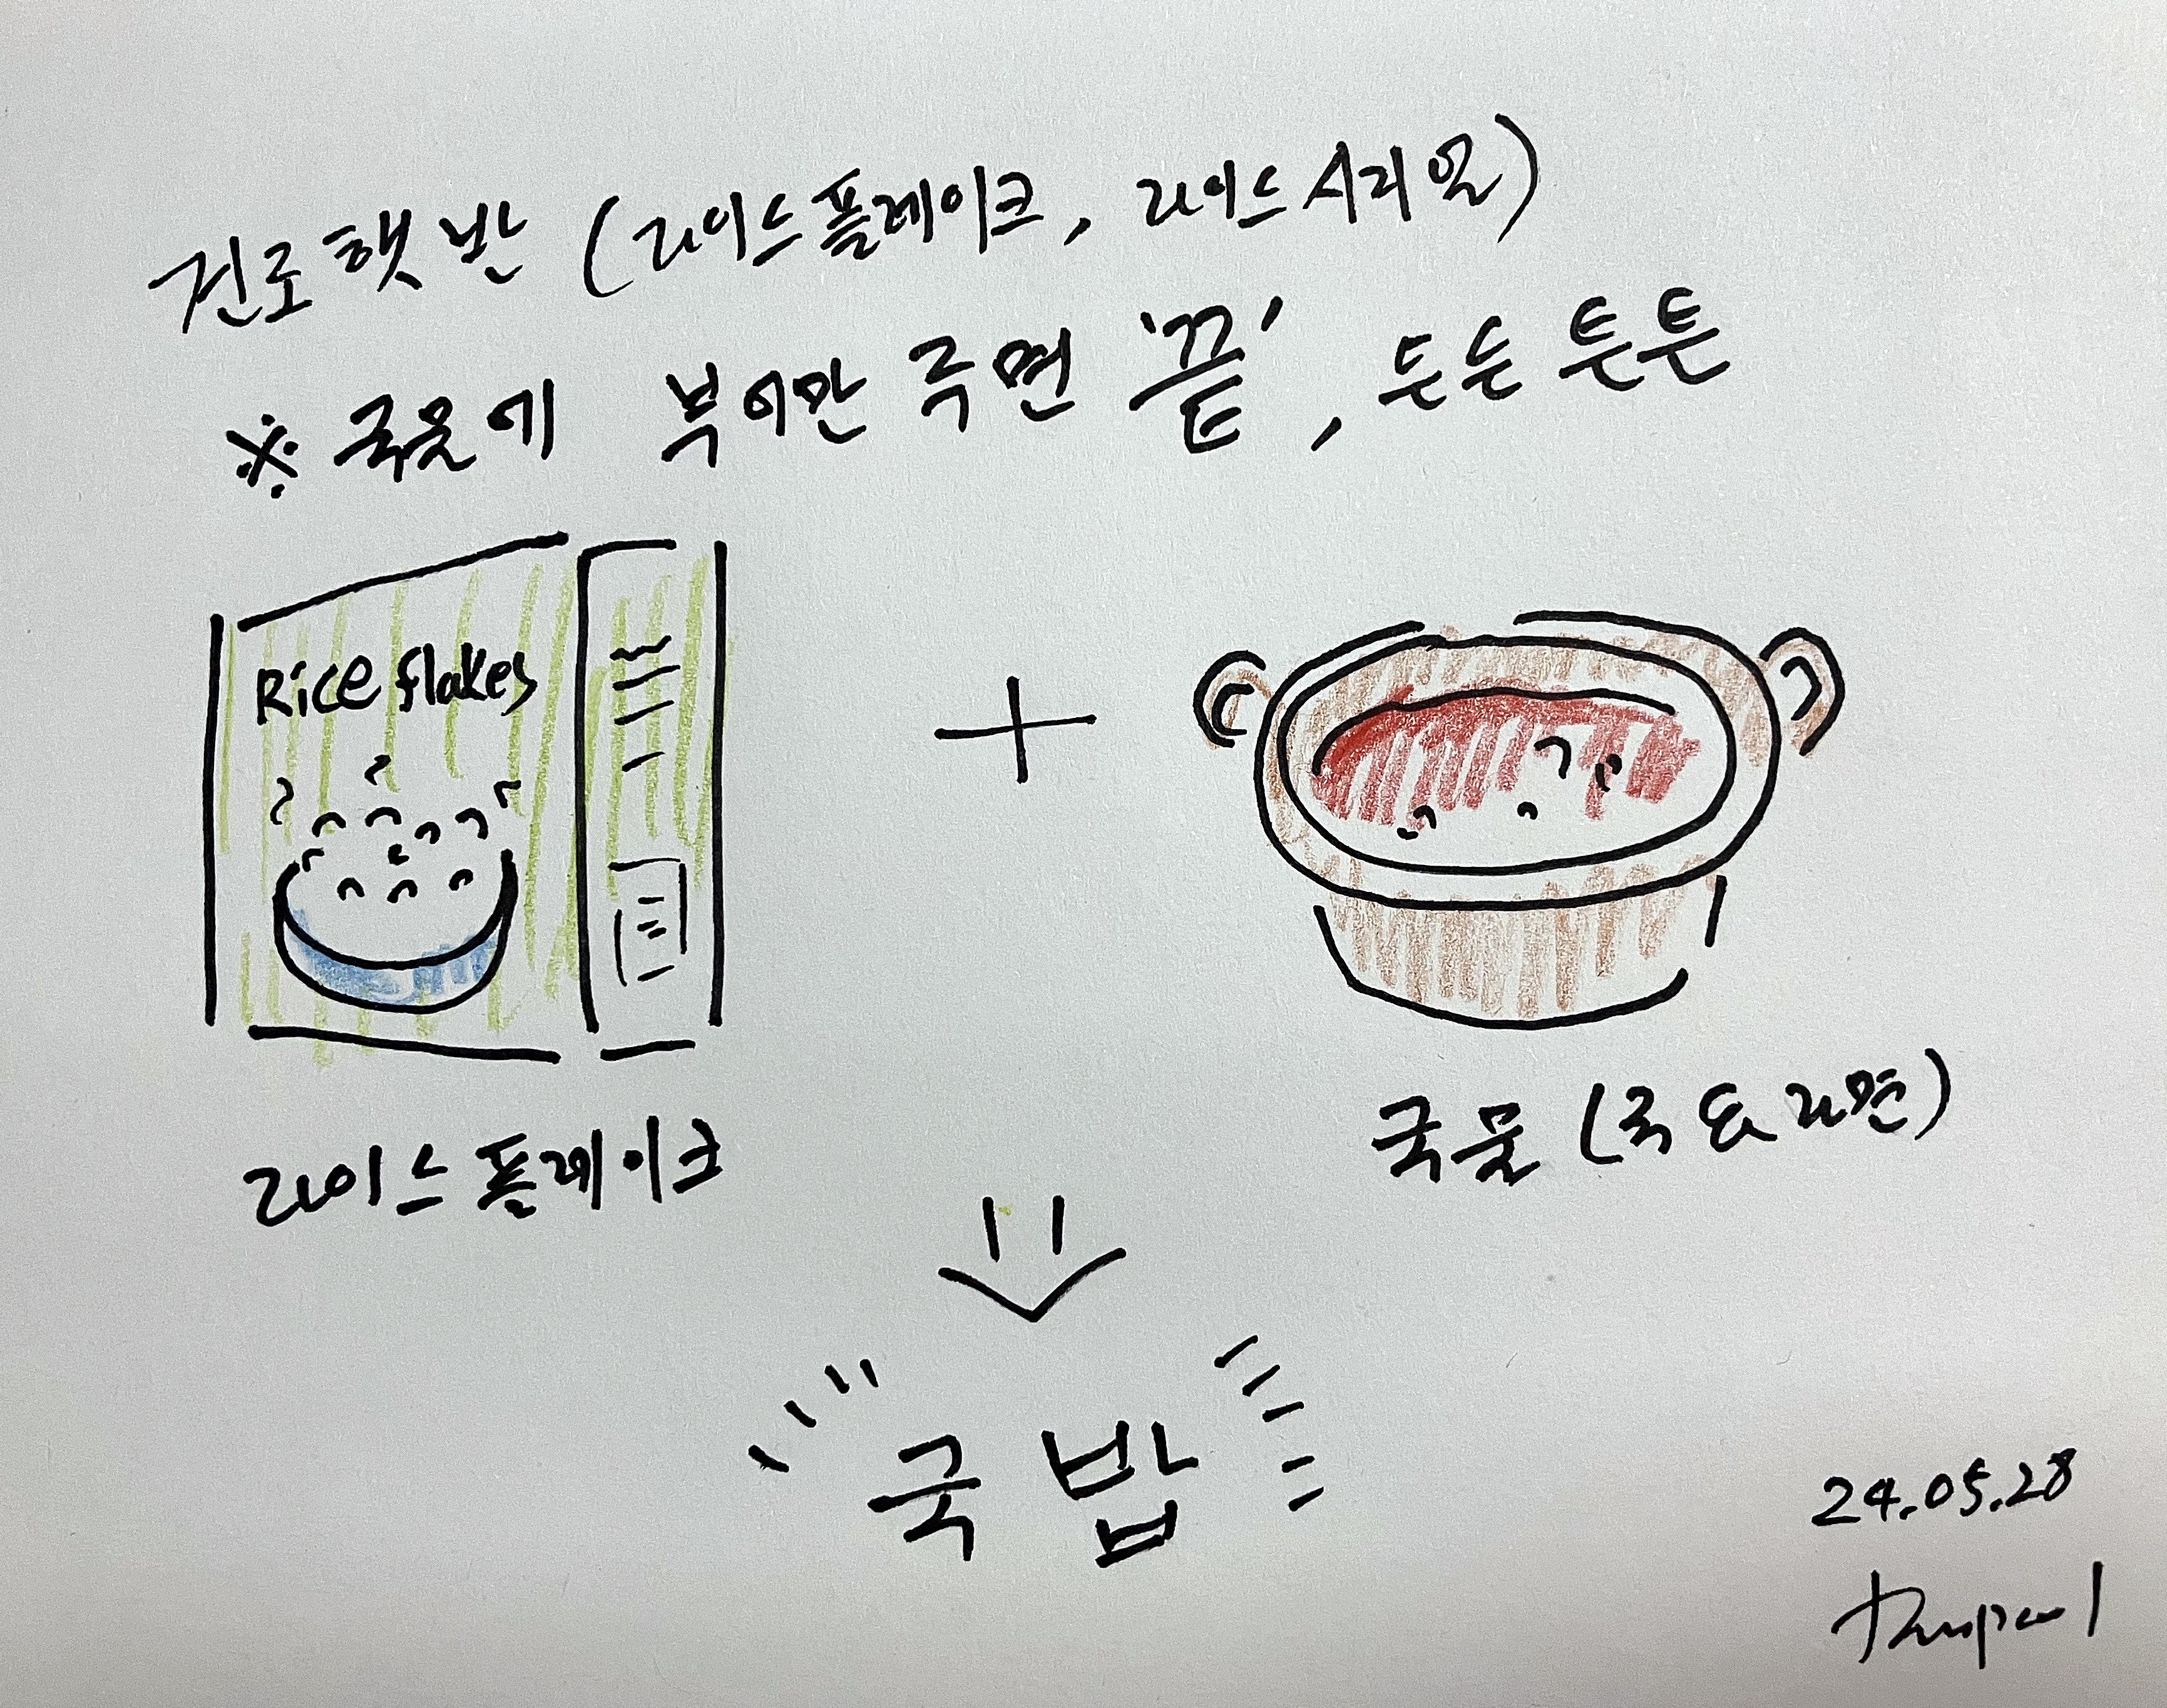 진로햇반 (라이스플레이크, 라이스시리얼)
※ 국물에 부어만 주면 '끝', 든든 튼튼
Rice flakes
+
라이스플레이크
국물 (국 & 라면)
국밥
24.05.28